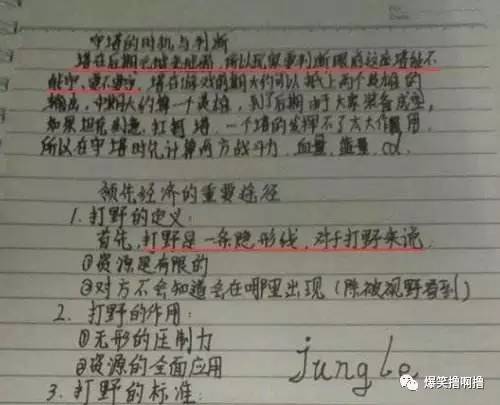 守塔的时机与判断
塔在后期 所以我们要判断眼前这座塔能不
能守,要不要守,塔在游戏前期大约可以抵上两个英雄的
输出,中期大约算一个英雄,到了后期由于大家装备成型,
如果坦克 扛 塔,一个塔的发挥不了太大作用
所以在守塔时先计算两方战斗力,血量,蓝量,cd.
领先经济的重要途径
1.打野的定义:
首先,打野是一条隐形线,对于打野来说,
①资源是有限的
②对方不会知道会在哪里出现(除被视野看到)
2.打野的作用:
①无形的压制力
②资源的全面应用
jungle
3.打野的标准:
爆笑撸啊撸